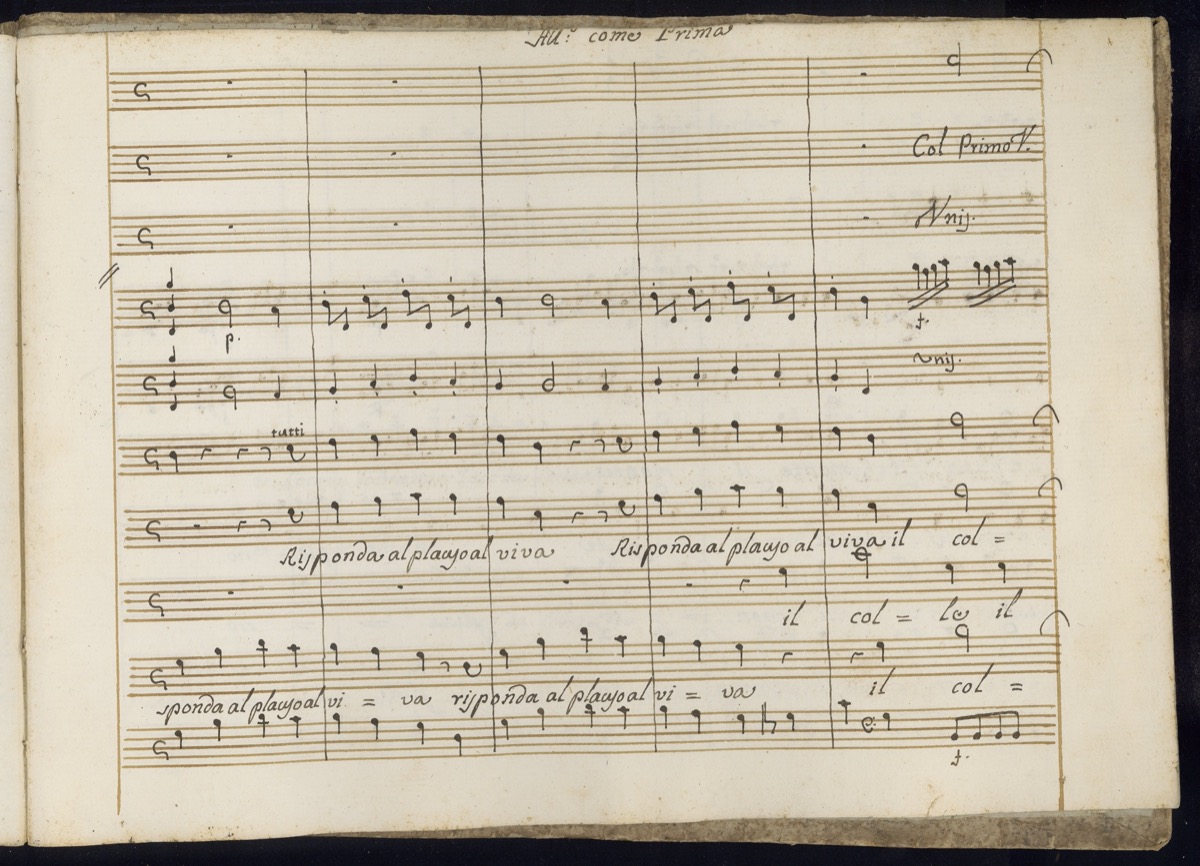 All:º come Prima
Col Primo V.
Vnij.
p.
f.
vnij.
tutti
Risponda al plauso al viva Risponda al plauso al viva il col =
il col = le il
sponda al plauso al vi = va risponda al plauso al vi = va il col =
f.